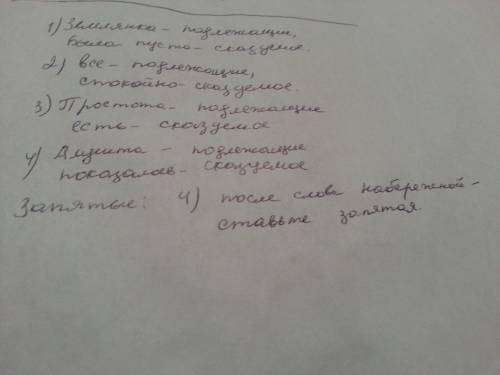 1) Землянка - подлежащии,
была пусто - сказуемие.
2) все - подлежащие,
спокойно - сказуемое.
3) Простота - подлежащие
есть - сказуемое
4) Анюта - подлежащие
показалов - сказуемое
Запятые: 4) после слова набережной -
ставьте запятая